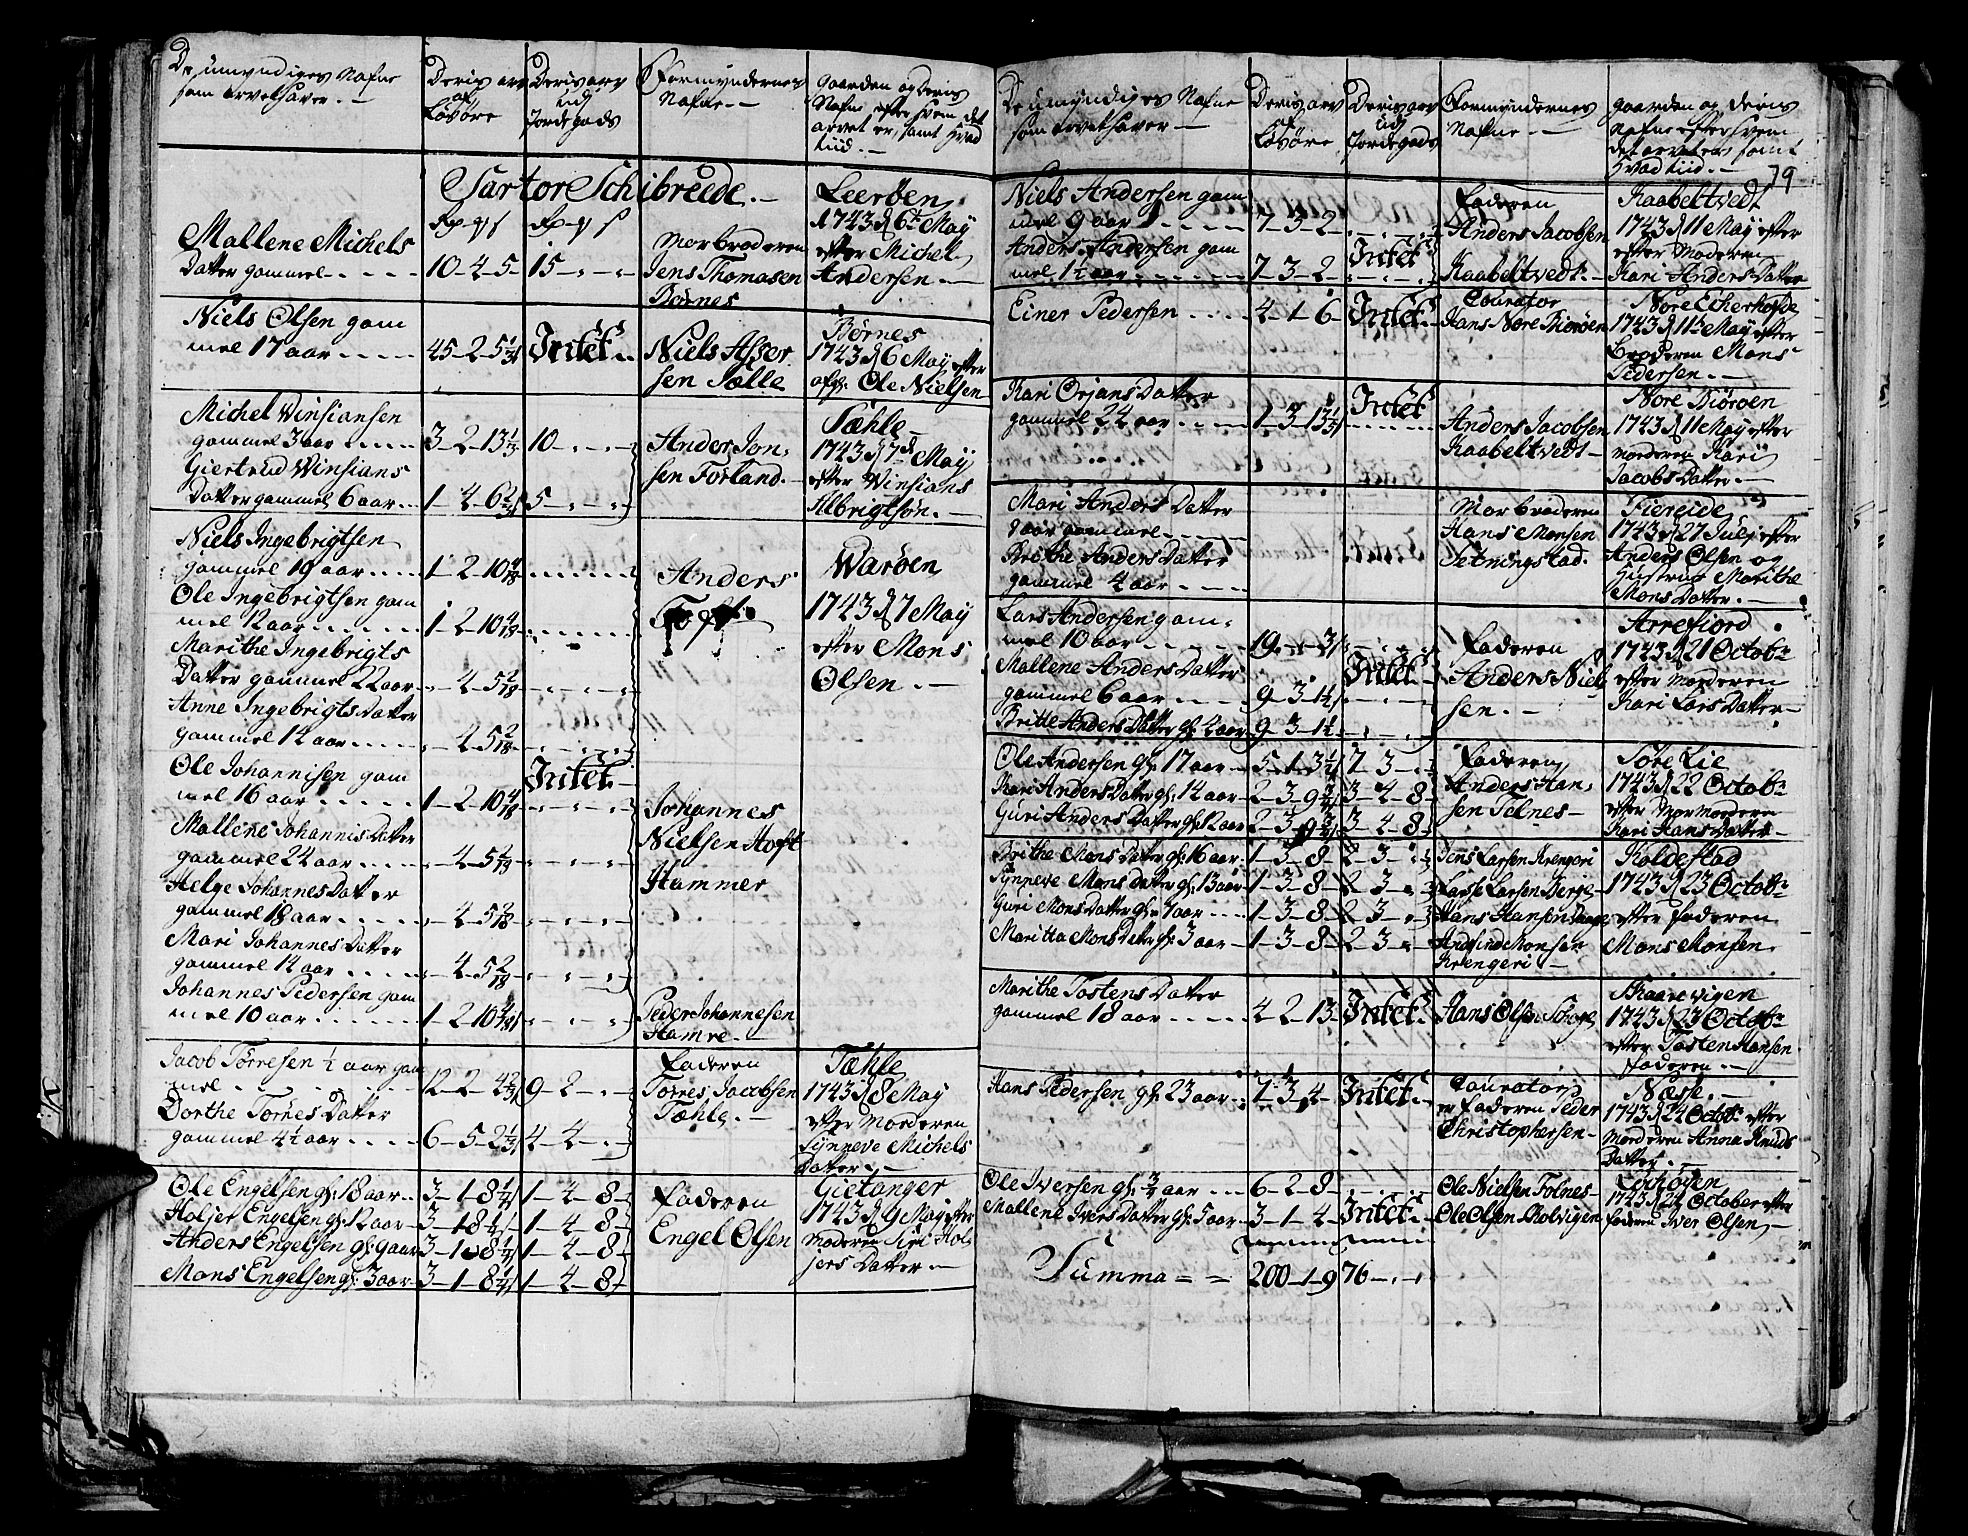 De umyndiges Nafne
som arvetager. —
Deris arv
af
Løsøre
Deris arv
udj
Jordegods
Formyndernes
Nafne. —
gaarden og Deris
Nafne efter hvem det
arvet er, samt hvad
tiid. —
Sartor Schibreede. —
Rp - ꝟ s
Rp - ꝟ s
Mallene Michels
Datter gammel - - - - -
10 - 4 - 5
15 - " - "
Morbroderen
Jens Thomasen
Børnes
Leerøen
1743 d 6te May
efter Michel
Andersen. —
Niels Olsen gam
mel 17 aar - - - -
45 - 2 - 5 1/3
Intet
Niels Asser
sen Sælle
Børnes
1743 d 6 May efter
afg: Ole Nielsen
Michel Winsiansen
gammel 3 aar - - - -
3 - 2 - 13 1/2
10 - " - "
Giertrud Winsians
Datter gammel 6 aar - -
1 - 4 - 6
5 - " - "
Anders Jon,
sen Forland. -
Tæhle
1743 d 7de May
efter Winsians
Albrigtsøn. —
Niels Ingebrigtsen
gammel 19 aar - - - -
1 - 2 - 10 4/18
Ole Ingebrigtsen gam
mel 12 aar - - - - -
1 - 2 - 10 4/18
Marithe Ingebrigts
Datter gammel 22 aar -
" - 4 - 5 2/18
Anne Ingebrigts Datter
gammel 14 aar - - - -
" - 4 - 5 2/18
Anders
Toft
Warøen
1743 d 7 May
efter Mons
Olsen. —
Ole Johannisen gam
mel 16 aar - - - - -
1 - 2 - 10 4/18
Intet
Mallene Johannis Datter
gammel 24 aar - - - -
" - 4 - 5 2/18
Helge Johannes Datter
gammel 18 aar - - - -
" - 4 - 5 2/18
Mari Johannes Datter
gammel 14 aar - - - -
" - 4 - 5 2/18
Johannes
Nielsen Hoft
Hammer
Johannes Pedersen gam
mel 10 aar - - - - -
1 - 2 - 10 4/18
Peder Johannesen
Hamre. —
Jacob Torresen 1/2 aar gam
mel - - - - -
12 - 2 - 4 2/3
9 - 2 - "
Dorthe Torres Datter
gammel 4 1/2 aar - - - -
6 - 5 - 2 1/3
4 - 4 - "
Faderen
Torres Jacobsen
Tæhle. —
Tæhle
1743 d 8 May
efter Moderen
Synneve Michels
Datter. —
Ole Engelsen gl: 18 aar -
3 - 1 - 8 1/4
1 - 4 - 8
Holjer Engelsen gl: 12 aar -
3 - 1 - 8 1/4
1 - 4 - 8
Anders Engelsen gl: 9 aar
3 - 1 - 8 1/4
1 - 4 - 8
Mons Engelsen gl: 3 aar
3 - 1 - 8 1/4
1 - 4 - 8
Faderen
Engel Olsen
Gietanger
1743 d 9 May efter
Moderen Siri Hol
jers Datter —
De umyndiges Nafne
som arvetager —
Deris arv
af
Løsøre
Deris arv
udj
Jordegods
Formyndernes
Nafne. —
gaarden og Deris
Nafne efter hvem
det arvet er, samt
hvad tiid. —
79
Niels Andersen gam
mel 9 aar - - - - -
7 - 3 - 2
Anders Andersen gam
mel 1 1/2 aar - - - - -
7 - 3 - 2
Intet
Faderen
Anders Jacobsen
Kaabeltvedt
Kaabeltvedt
1743 d 11 May efter
Moderen
Kari Anders Datter
Einer Pedersen - - - -
4 - 1 - 6
Intet
Courator
Hans Nore Biorøen
Nore Echerhofde
1743 d 11te May efter
Broderen Mons
Pedersen. —
Kari Orjans Datter
gammel 24 aar - - -
1 - 3 - 13 1/3
Intet
Anders Jacobsen
Kaabeltvedt -
Nore Biøroen
1743 d 11 May efter
Moderen Kari
Jacobs Datter. —
Mari Anders Datter
8 aar gammel - - - - -
Brithe Anders Datter
gammel 4 aar - - - -
Morbroderen
Hans Monsen
Setningstad.
Fiereide
1743 d 27 July efter
Anders Olsen og
Hustrue Marithe
Mons Datter. —
Lars Andersen gam,
mel 10 aar - - - -
19 - " - 3
Mallene Anders Datter
gammel 6 aar - - -
9 - 3 - 1 1/2
Britte Anders Datter gl: 4 aar
9 - 3 - 1 1/2
Intet
Faderen
Anders Niel
sen. —
Arrefiord
1743 d 21 Octobr
efter Moderen
Kari Lars Datter —
Ole Andersen gl: 17 aar -
5 - 1 - 3 1/2
7 - 3 - "
Kari Anders Datter gl: 14 aar -
2 - 3 - 9 3/4
3 - 4 - 8
Guri Anders Datter gl: 12 aar
2 - 3 - 9 3/4
3 - 4 - 8
Faderen
Anders Han,
sen Telnes —
Søre Lie
1743 d 22 Octobr
efter Mormoderen
Kari Hans Datter —
Brithe Mons Datter gl: 16 aar -
1 - 3 - 8
2 - 3 - "
Synneve Mons Datter gl: 13 aar
1 - 3 - 8
2 - 3 - "
Guri Mons Datter gl: 7 aar - - -
1 - 3 - 8
2 - 3 - "
Maritta Mons Datter gl: 3 aar -
1 - 3 - 8
2 - 3 - "
Jens Larsen Krengeri
Lasse Larsen Berge
Hans Hansen
Andfind Monsen
Krengeri —
Koldestad
1743 d 23 Octobr
efter Faderen
Mons Monsen.
Marithe Tostens Datter
gammel 18 aar - - - -
4 - 2 - 13
Intet
Hans Olsen
Skaarevigen
1743 d 23 Octobr
efter Tosten Hansen
Faderen. —
Hans Pedersen gl: 23 aar - -
7 - 3 - 4
Intet
Courator
er Faderen Peder
Christophersen -
Næsse. —
1743 d 24 Octobr efter
Moderen Anna Knuds
Datter. —
Ole Iversen gl: 3/4 aar - - -
6 - 2 - 8
Mallene Ivers Datter gl: 5 aar -
3 - 1 - 4
Intet
Ole Nielsen Folnes
Ole Olsen Skolvigen
Lerhøien
1743 d 24 October efter
Faderen Iver Olsen, —
Summa = =
200 - 1 - 9
76 - " - "